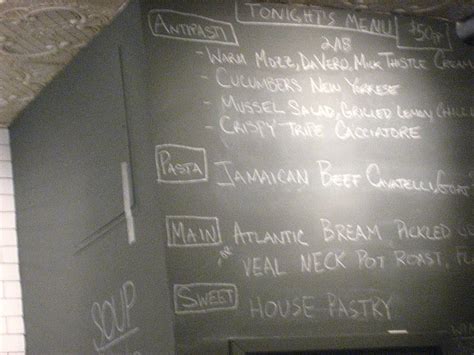 TONIGHT'S MENU
$50pp
2/18
ANTIPASTI
- WARM MOZZ, DAVERO, MILK THISTLE CREAM
- CUCUMBERS NEW YORKESE
- MUSSEL SALAD, GRILLED LEMON
- CRISPY TRIPE CACCIATORE
PASTA
JAMAICAN BEEF CAVATELLI, GOAT
MAIN
ATLANTIC BREAM PICKLED
OR VEAL NECK POT ROAST,
SWEET
HOUSE PASTRY
SOUP